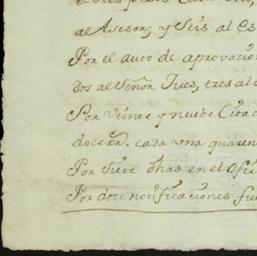 al Asesor, y Seis al Es
Por el auto de aprovacio
dos al Señor Jues, tres al
Por Veinte y nuebe Citac
doce rr.s cada una quaren
Por Siete dhas en el Ofi
Por doce notificaciones